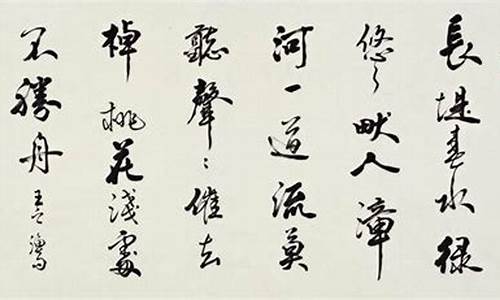 長堤春水緑
悠々畎入漳
河一道流莫
聽聲々催去
棹桃花淺處
不勝舟 王之